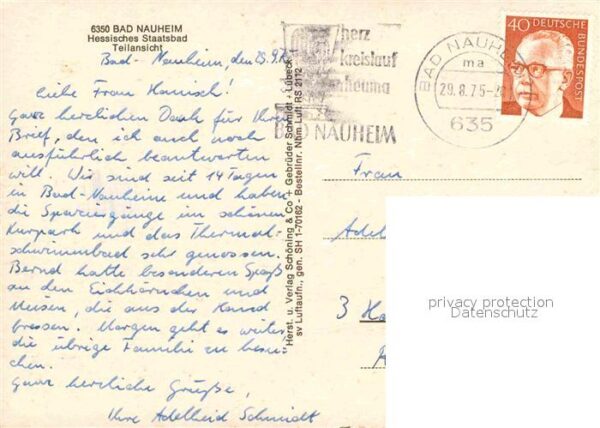 6350 BAD NAUHEIM
Hessisches Staatsbad
Teilansicht
Bad-Nauheim, den 29.
Liebe Frau Hanisch!
Ganz herzlichen Dank für Ihren
Brief, den ich auch noch
ausführlich beantworten
will. Wir sind seit 14 Tagen
in Bad-Nauheim und haben
die Spaziergänge im schönen
Kurpark und das Thermal-
schwimmbad sehr genossen.
Bernd hatte besonderen Spaß
an den Eichhörnchen und
Meisen, die aus der Hand
fressen. Morgen geht es weiter
die übrige Familie zu besu-
chen.
Ganz herzliche Grüße,
Ihre Adelheid Schmidt
Herst. u. Verlag Schöning & Co + Gebrüder Schmidt + Lübeck
sv Luftaufn., gen. SH 1-70162 - Bestellnr. Nhm. Luft RS 2112
herz
kreislauf
rheuma
BAD NAUHEIM
BAD NAUHE
ma
29.8.75-20
635
40 DEUTSCHE
BUNDESPOST
Frau
Adel
3 Ha
privacy protection
Datenschutz